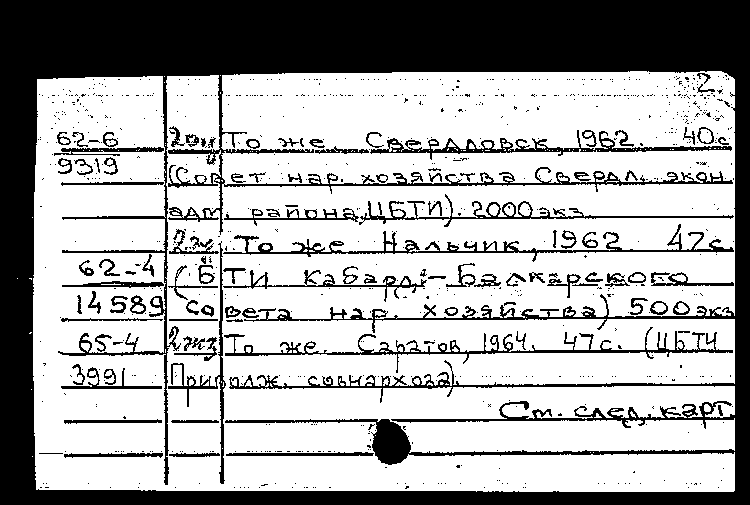 2.
62-6 2экз То же. Свердловск, 1962. 40с
9319 (Совет нар. хозяйства Свердл. экон
адм. района, ЦБТИ). 2000 экз
То же Нальчик, 1962 47с.
62-4 (БТИ Кабард.-Балкарского
14589 совета нар. хозяйства) 500 экз
65-4 2экз То же. Саратов, 1964. 47с. (ЦБТИ
3991 Приволж. совнархоза).
См. след. карт.